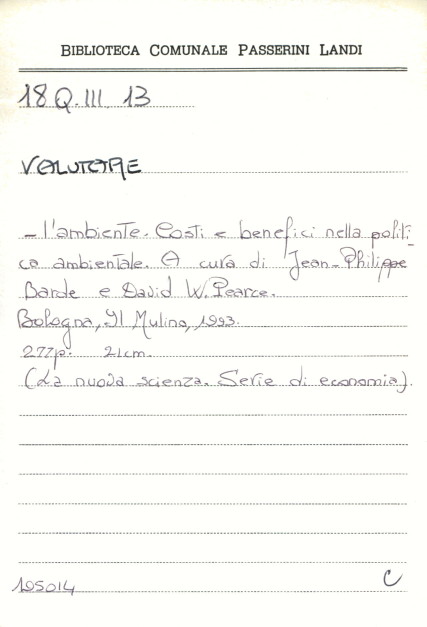 BIBLIOTECA COMUNALE PASSERINI LANDI
18 Q. III. 13
VALUTARE
- l'ambiente. Costi e benefici nella politi-
ca ambientale. A cura di Jean-Philippe
Barde e David W. Pearce.
Bologna, Il Mulino, 1993.
277p. 21cm.
(La nuova scienza. Serie di economia).
195014 C